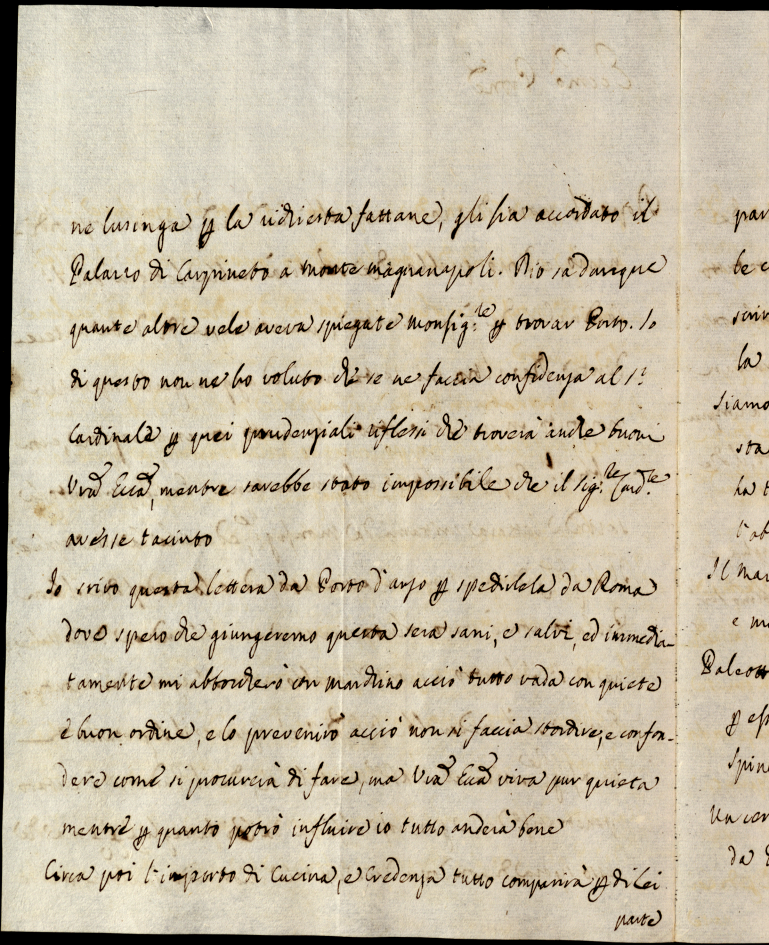 ne lusinga p la richiesta fattane, gli sia accordato il
Palazzo di Carpineto a monte magnanapoli. Dio sà dunque
quante altre vele aveva spiegate Monsig.re p trovar Porto. Io
di questo non ne ho voluto che se ne faccia confidenza al S.r
Cardinale p quei prudenziali riflessi che troverà anche buoni
Vra Ecca, mentre sarebbe stato impossibile che il Sig.re Card.le
avesse taciuto
Io scrivo questa lettera da Porto d'anzo p spedirlela da Roma
dove spero che giungeremo questa sera sani, e salvi, ed immedia-
tamente mi abboccherò con Marchino acciò tutto vada con quiete
e buon ordine, e lo prevenirò acciò non si faccia stordire, e confon-
dere come si procurerà di fare, ma Vra Ecca viva pur quieta
mentre p quanto potrò influire io tutto anderà bene
Circa poi l'importo di Cucina, e Credenza tutto comparirà p di Lei
parte
par
be
scri
la
siamo
sta
ha
l'ab
Il Mar
e m
Paleott
p esp
Spin
Un cer
da